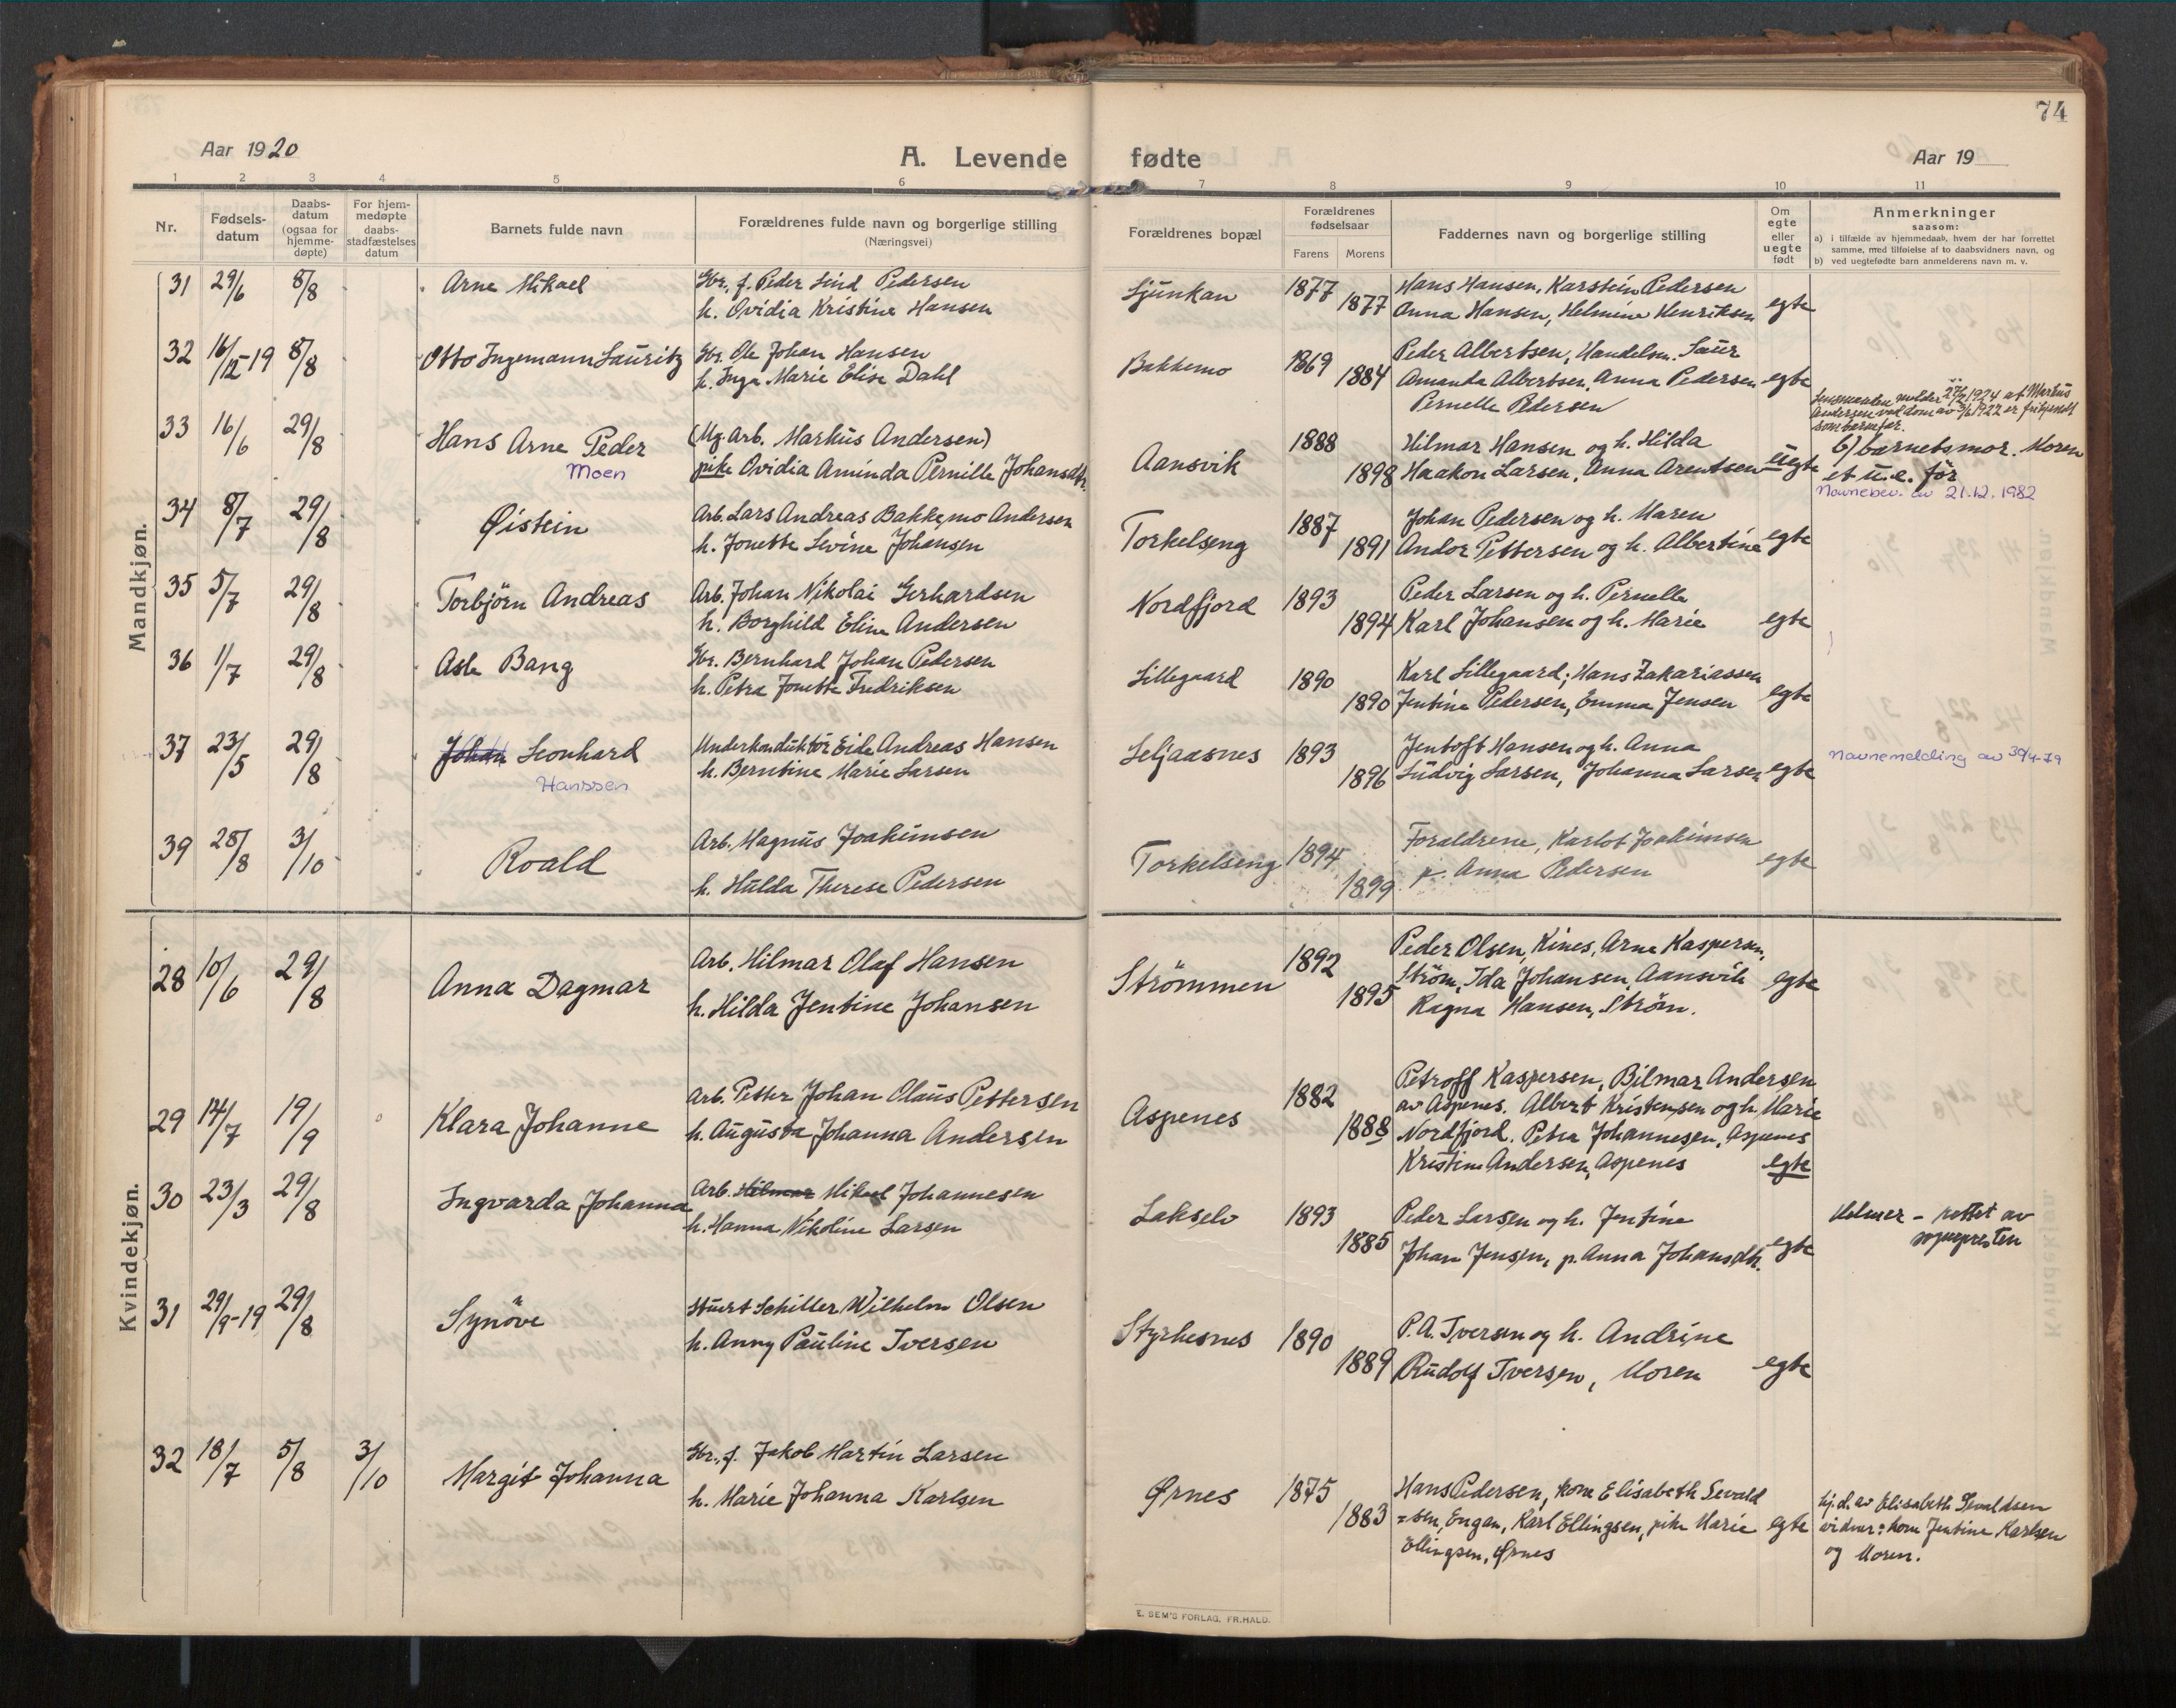 74
Aar 1920
A. Levende fødte
Aar 19
1 2 3 4 5 6 7 8 9 10 11
Nr.
Fødsels-
datum
Daabs-
datum
(ogsaa for
hjemme-
døpte)
For hjem-
medøpte
daabs-
stadfæstelses
datum
Barnets fulde navn
Forældrenes fulde navn og borgerlige stilling
(Næringsvei)
Forældrenes bopæl
Forældrenes
fødselsaar
Farens Morens
Faddernes navn og borgerlige stilling
Om
egte
eller
uegte
født
Anmerkninger
saasom:
a) i tilfælde av hjemmedaab, hvem der har forrettet
samme, med tilføielse af to daabsvidners navn, og
b) ved uegtefødte barn anmelderens navn m. v.
Mandkjøn.
31 29/6 8/8 Arne Mikael
Gbr., f. Peder Lind Pedersen
h. Ovidia Kristine Hansen
Ljünkan 1877
1877
Hans Hansen, Karstein Pedersen
Anna Hansen, Helmine Henriksen egte
32 16/12-19 8/8 Otto Ingemann Lauritz
Gbr. Ole Johan Hansen
h. Inga Marie Elise Dahl
Bakkemo 1869
1884
Peder Albertsen, Handelsm. Saur
Amanda Albertsen, Anna Pedersen egte
Pernelle Pedersen
33 16/6 29/8 Hans Arne Peder
Moen
(Ug. Arb. Markus Andersen)
pike Ovidia Aminda Pernille Johansdtr.
Aansvik 1888
1898
Hilmar Hansen og h. Hilda
Haakon Larsen, Anna Arentsen uegte
Lensmanden melder 27/2 1924 at Markus
Andersen ved dom av 1922 er frikjendt
som barnefar.
b) barnets mor. Moren
et u.e. før
Navnebev. av 21.12.1982
34 8/7 29/8 Øistein
Arb. Lars Andreas Bakkemo Andersen
h. Jonette Levine Johansen
Torkelseng 1887
1891
Johan Pedersen og h. Maren
Andor Pettersen og h. Albertine egte
35 5/7 29/8 Torbjörn Andreas
Arb. Johan Nikolai Gerhardsen
h. Borghild Eline Andersen
Nordfjord 1893
1894
Peder Larsen og h. Pernelle
Karl Johansen og h. Marie egte
36 1/7 29/8 Asle Bang
Gbr. Bernhard Johan Pedersen
h. Petra Jonette Fredriksen
Lillegaard 1890
1890
Karl Lillegaard; Hans Zakariassen
Jentine Pedersen, Emma Jensen egte
37 23/5 29/8 Johan Leonhard
Hanssen
Underkonduktör Eide Andreas Hansen
h. Berntine Marie Larsen
Seljaasnes 1893
1896
Jentoft Hansen og h. Anna
Ludvig Larsen, Johanna Larsen egte
Navnemelding av 30/4-79
39 28/8 3/10 Roald
Arb. Magnus Joakimsen
h. Hulda Therese Pedersen
Torkelseng 1894
1899
Foraldrene, Karlot Joakimsen
p. Anna Pedersen egte
Kvindekjøn.
28 10/6 29/8 Anna Dagmar
Arb. Hilmar Olaf Hansen
h. Hilda Jentine Johansen
Strömmen 1892
1895
Peder Olsen, Kines, Arne Kaspersen,
Ström, Ida Johansen, Aansvik egte
Ragna Hansen, Ström.
29 14/7 19/9 Klara Johanne
Arb. Petter Johan Olaus Pettersen
h. Augusta Johanna Andersen
Aspenes 1882
1888
Petroff Kaspersen, Bilmar Andersen
av Aspenes. Albert Kristensen og h. Marie
Nordfjord. Petra Johannesen, Aspenes
Kristine Andersen, Aspenes egte
30 23/3 29/8 Ingvarda Johanna
Arb. Hilmar Mikael Johannesen
h. Hanna Nikoline Larsen
Lakselv 1893
1885
Peder Larsen og h. Jentine
Johan Jensen, p. Anna Johansdtr. egte
Helmer - rettet av
sognepresten
31 29/9-19 29/8 Synöve
Stuert Schiller Wilhelm Olsen
h. Anny Pauline Iversen
Styrkesnes 1890
1889
P.A. Iversen og h. Andrine
Rudolf Iversen, Moren egte
32 18/7 5/8 3/10 Margit Johanna
Gbr., f. Jakob Martin Larsen
h. Marie Johanna Karlsen
Ørnes 1875
1883
Hans Pedersen, kone Elisabeth Sevald
=sen, Engan, Karl Ellingsen, pike Marie egte
Ellingsen, Ørnes
hj. d. av Elisabeth Sevaldsen
vidner: kone Jentine Karlsen
og Moren.
E. SEM'S FORLAG, FR.HALD.